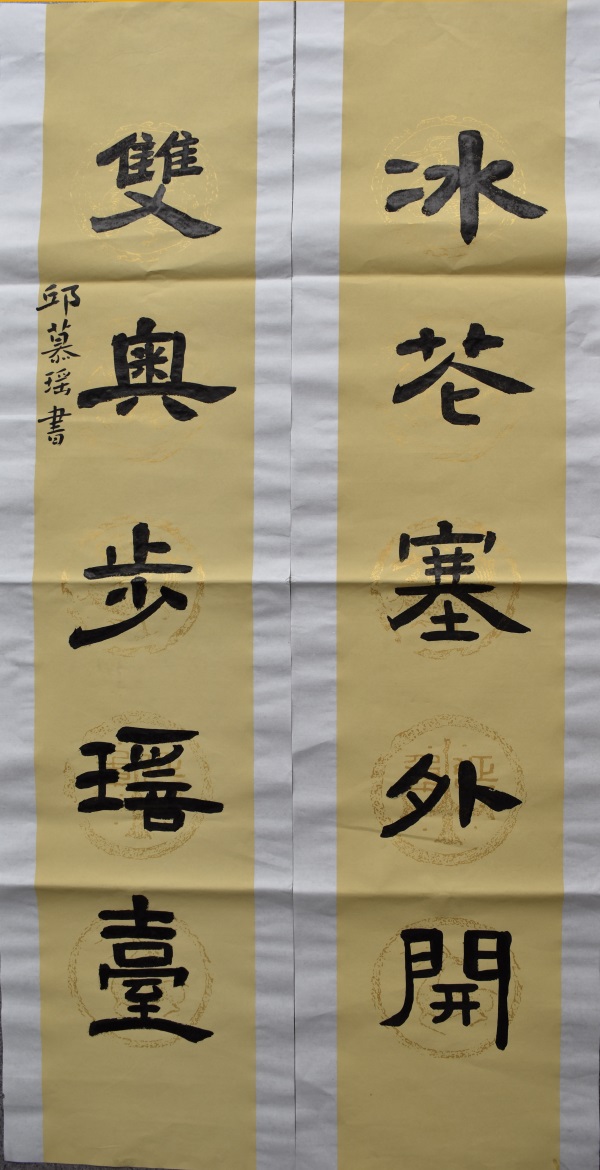 冰花塞外開
雙奧步瑤臺
邱慕瑶書